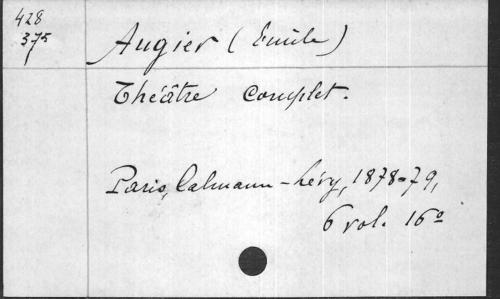 428
375
Augier (Emile)
Théâtre complet.
Paris, Calmann-Lévy, 1878-79,
6 vol. 16º